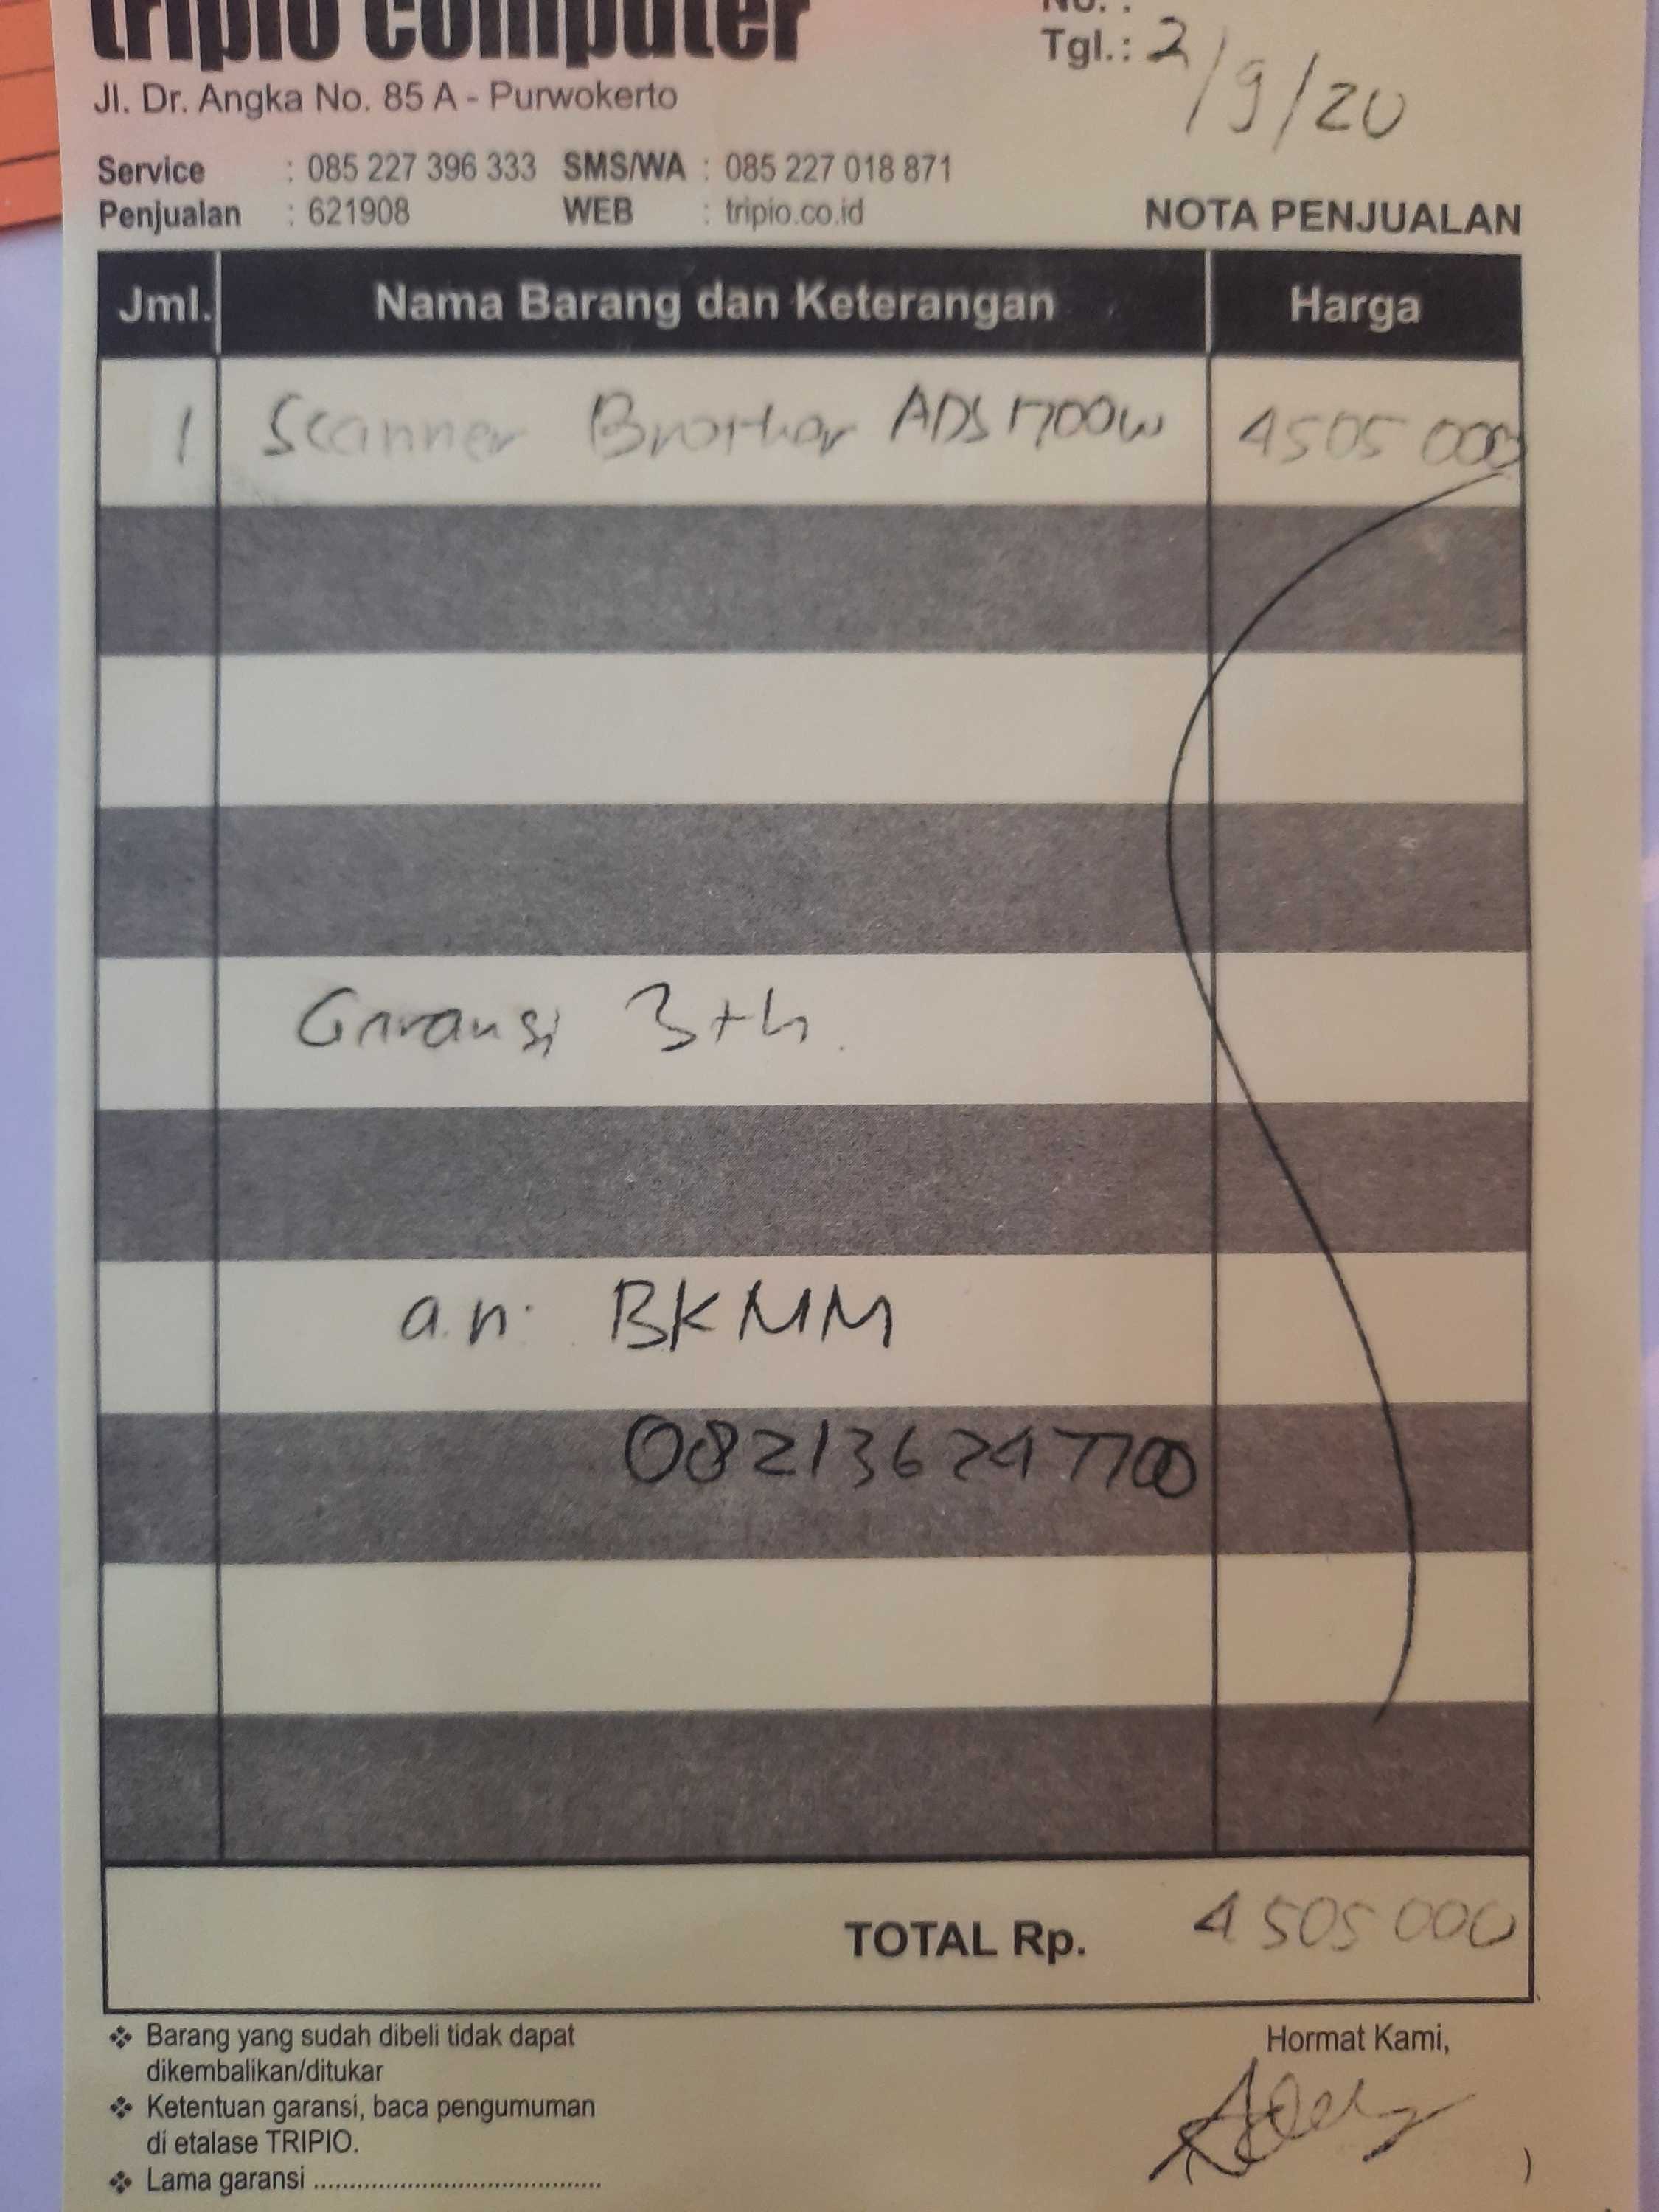 tripio computer
No. :
Tgl.: 2/9/20
Jl. Dr. Angka No. 85 A - Purwokerto
Service : 085 227 396 333 SMS/WA : 085 227 018 871
Penjualan : 621908 WEB : tripio.co.id
NOTA PENJUALAN
Jml. Nama Barang dan Keterangan Harga
1 Scanner Brother ADS 1700w 4505 000
Garansi 3th.
a.n. BKMM
082136247700
TOTAL Rp. 4 505 000
❖ Barang yang sudah dibeli tidak dapat
dikembalikan/ditukar
❖ Ketentuan garansi, baca pengumuman
di etalase TRIPIO.
❖ Lama garansi ..........................................
Hormat Kami,
)